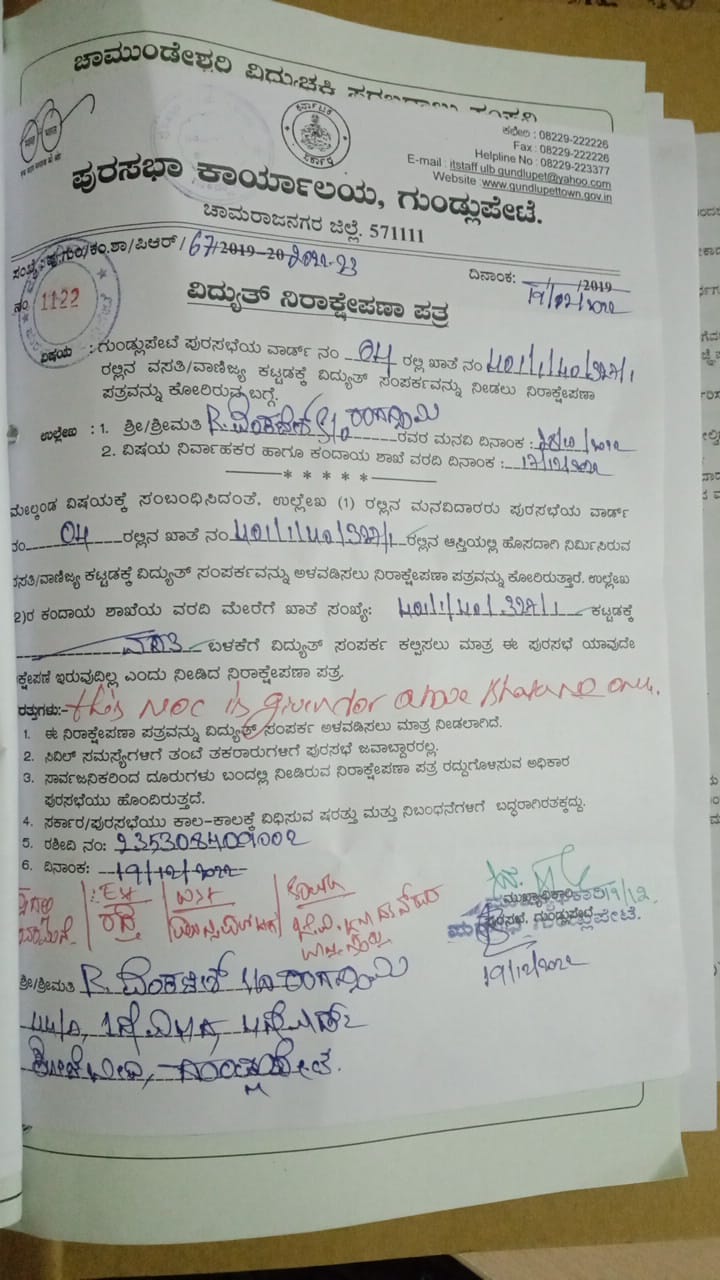 ಚಾಮುಂಡೇಶ್ವರಿ ವಿದ್ಯುಚ್ಛಕ್ತಿ
ಕರ್ನಾಟಕ
ಸರ್ಕಾರ
ಕಛೇರಿ : 08229-222226
Fax : 08229-222226
Helpline No : 08229-223377
E-mail : itstaff ulb gundlupet@yahoo.com
Website : www.gundlupettown.gov.in
ಪುರಸಭಾ ಕಾರ್ಯಾಲಯ, ಗುಂಡ್ಲುಪೇಟೆ.
ಚಾಮರಾಜನಗರ ಜಿಲ್ಲೆ. 571111
ಸಂಖ್ಯೆ: ಪು.ಗುಂ/ಕಂ.ಶಾ/ಪಿಆರ್ / 67/2019-20 2022-23
ದಿನಾಂಕ: / /2019
19/12/2022
ನಂ 1122
ವಿದ್ಯುತ್ ನಿರಾಕ್ಷೇಪಣಾ ಪತ್ರ
ವಿಷಯ : ಗುಂಡ್ಲುಪೇಟೆ ಪುರಸಭೆಯ ವಾರ್ಡ್ ನಂ 04 ರಲ್ಲಿ ಖಾತೆ ನಂ 401/1/40/327/1
ರಲ್ಲಿನ ವಸತಿ/ವಾಣಿಜ್ಯ ಕಟ್ಟಡಕ್ಕೆ ವಿದ್ಯುತ್ ಸಂಪರ್ಕವನ್ನು ನೀಡಲು ನಿರಾಕ್ಷೇಪಣಾ
ಪತ್ರವನ್ನು ಕೋರಿರುವ ಬಗ್ಗೆ.
ಉಲ್ಲೇಖ : 1. ಶ್ರೀ/ಶ್ರೀಮತಿ R. ವೆಂಕಟೇಶ್ S/o ರಂಗಸ್ವಾಮಿ ರವರ ಮನವಿ ದಿನಾಂಕ :
2. ವಿಷಯ ನಿರ್ವಾಹಕರ ಹಾಗೂ ಕಂದಾಯ ಶಾಖೆ ವರದಿ ದಿನಾಂಕ : 17/12/2022
* * * * *
ಮೇಲ್ಕಂಡ ವಿಷಯಕ್ಕೆ ಸಂಬಂಧಿಸಿದಂತೆ, ಉಲ್ಲೇಖ (1) ರಲ್ಲಿನ ಮನವಿದಾರರು ಪುರಸಭೆಯ ವಾರ್ಡ್
ನಂ 04 ರಲ್ಲಿನ ಖಾತೆ ನಂ 401/1/40/327/1 ರಲ್ಲಿನ ಆಸ್ತಿಯಲ್ಲಿ ಹೊಸದಾಗಿ ನಿರ್ಮಿಸಿರುವ
ವಸತಿ/ವಾಣಿಜ್ಯ ಕಟ್ಟಡಕ್ಕೆ ವಿದ್ಯುತ್ ಸಂಪರ್ಕವನ್ನು ಅಳವಡಿಸಲು ನಿರಾಕ್ಷೇಪಣಾ ಪತ್ರವನ್ನು ಕೋರಿರುತ್ತಾರೆ. ಉಲ್ಲೇಖ
2)ರ ಕಂದಾಯ ಶಾಖೆಯ ವರದಿ ಮೇರೆಗೆ ಖಾತೆ ಸಂಖ್ಯೆ: 401/1/40/327/1 ಕಟ್ಟಡಕ್ಕೆ
ವಸತಿ ಬಳಕೆಗೆ ವಿದ್ಯುತ್ ಸಂಪರ್ಕ ಕಲ್ಪಿಸಲು ಮಾತ್ರ ಈ ಪುರಸಭೆ ಯಾವುದೇ
ಕ್ಷೇಪಣೆ ಇರುವುದಿಲ್ಲ ಎಂದು ನೀಡಿದ ನಿರಾಕ್ಷೇಪಣಾ ಪತ್ರ.
ರತ್ತುಗಳು:- this NOC is given for above Khata no only.
1. ಈ ನಿರಾಕ್ಷೇಪಣಾ ಪತ್ರವನ್ನು ವಿದ್ಯುತ್ ಸಂಪರ್ಕ ಅಳವಡಿಸಲು ಮಾತ್ರ ನೀಡಲಾಗಿದೆ.
2. ಸಿವಿಲ್ ಸಮಸ್ಯೆಗಳಿಗೆ ತಂಟೆ ತಕರಾರುಗಳಿಗೆ ಪುರಸಭೆ ಜವಾಬ್ದಾರರಲ್ಲ.
3. ಸಾರ್ವಜನಿಕರಿಂದ ದೂರುಗಳು ಬಂದಲ್ಲಿ ನೀಡಿರುವ ನಿರಾಕ್ಷೇಪಣಾ ಪತ್ರ ರದ್ದುಗೊಳಿಸುವ ಅಧಿಕಾರ
ಪುರಸಭೆಯು ಹೊಂದಿರುತ್ತದೆ.
4. ಸರ್ಕಾರ/ಪುರಸಭೆಯು ಕಾಲ-ಕಾಲಕ್ಕೆ ವಿಧಿಸುವ ಷರತ್ತು ಮತ್ತು ನಿಬಂಧನೆಗಳಿಗೆ ಬದ್ಧರಾಗಿರತಕ್ಕದ್ದು.
5. ರಶೀದಿ ನಂ: 235308409002
6. ದಿನಾಂಕ: 19/12/2022
ರಸ್ತೆ
ಮುಖ್ಯಾಧಿಕಾರಿ 19/12
ಪುರಸಭೆ, ಗುಂಡ್ಲುಪೇಟೆ.
19/12/2022
ಶ್ರೀ/ಶ್ರೀಮತಿ R. ವೆಂಕಟೇಶ್ S/o ರಂಗಸ್ವಾಮಿ
ಗುಂಡ್ಲುಪೇಟೆ.